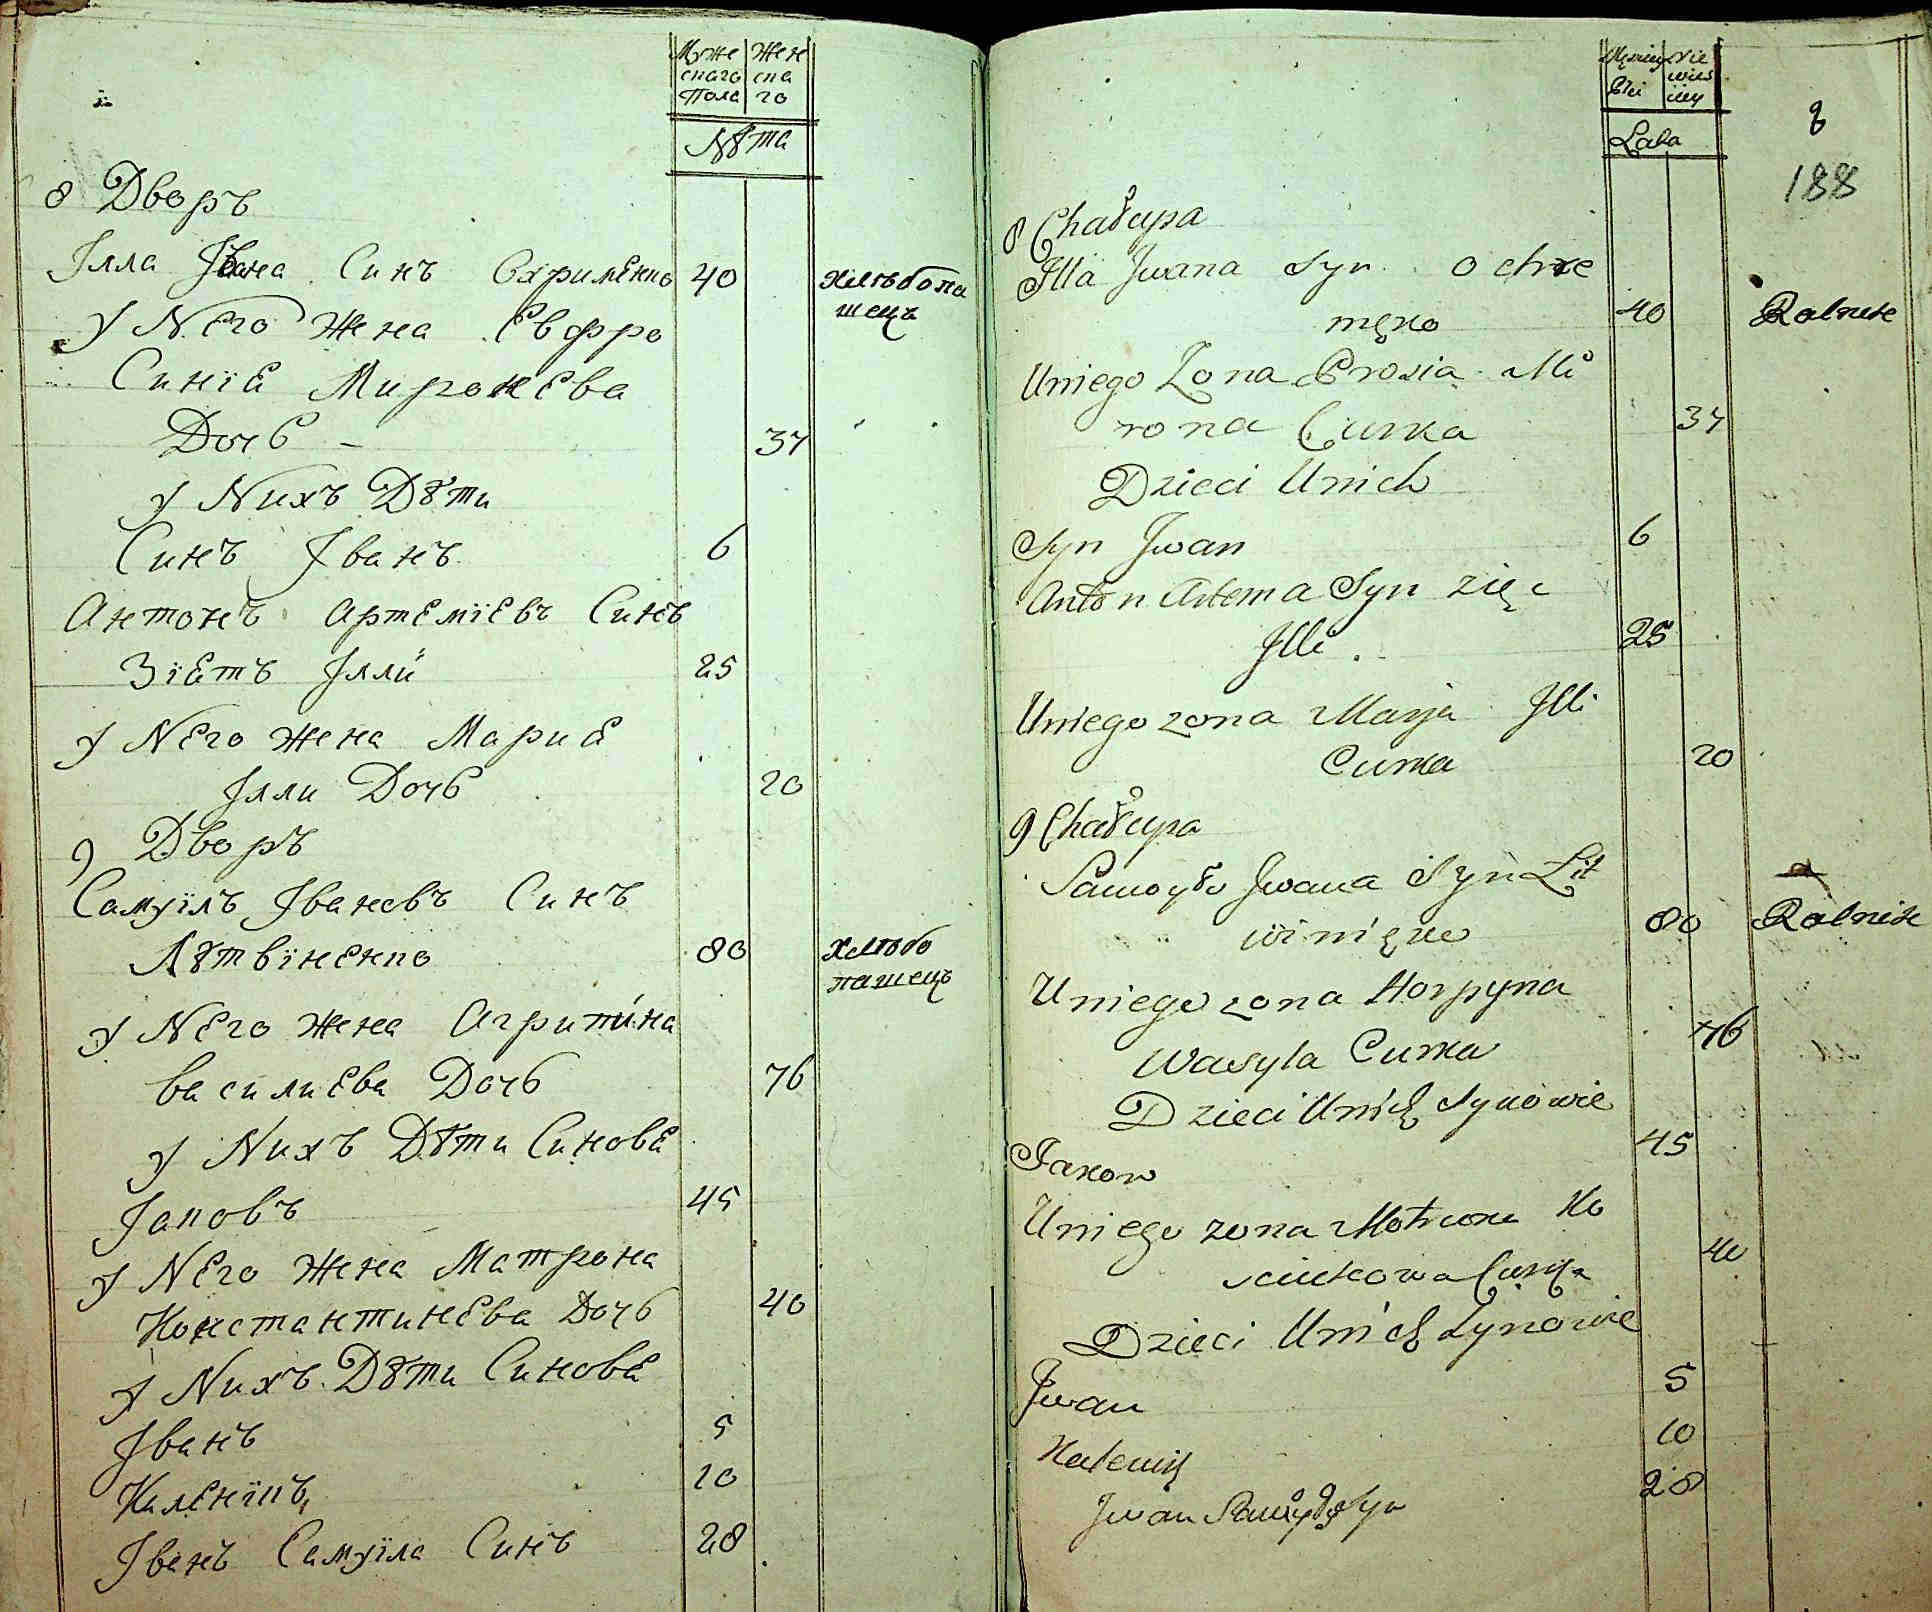 Муже Жен
скаго ска
Пола го
Лѣта
8 Дворъ
Ілла Івана Синъ Охрименко 40 Хлѣбопа
шецъ
У Него Жена Євфро
Синїѣ Миронева
Дочь 37
У Нихъ Дѣти
Синъ Іванъ 6
Антонъ Артемїевъ Синъ
Зїѣтъ Іллї 25
У Него Жена Мариѣ
Іллi Дочь 20
9 Дворъ
Самуїлъ Івановъ Синъ
Лѣтвїненко 80 Хлѣбо
пашецъ
У Него Жена Агрипина
Василиева Дочь 76
У Нихъ Дѣти Синовѣ
Іаковъ 45
У Него Жена Матрона
Константинева Дочь 40
У Нихъ Дѣти Синовѣ
Іванъ 5
Каленїкъ 10
Іванъ Самуїла Синъ 28
Lata
8
188
8 Chałupa
Jlla Jwana Syn Ochre
męko 40 Rolnik
Uniego Zona Prosia Mi
rona Curka 37
Dzieci Unich
Syn Jwan 6
Anton Artema Syn zięc
Jlli 25
Uniego zona Marja Jlli
Curka 20
9 Chałupa
Samoyło Jwana Syn Lit
winięko 80 Rolnik
Uniego zona Horpyna
Wasyla Curka 76
Dzieci Unich Synowie
Jakow 45
Uniego zona Motrona Ko
Curka 40
Dzieci Unich Synowie
Jwan 5
Kalenik 10
Jwan Samoyły Syn 28